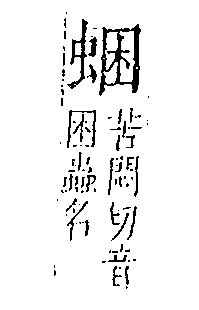 蜠
苦悶切音
困蟲名